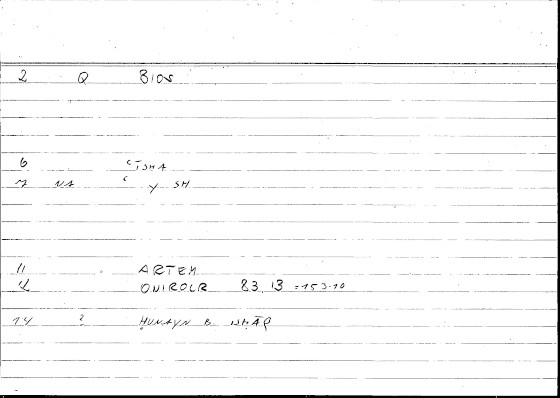 2 Q BIOS
6 ʿĪSHA
7 NA ʿ Y SH
11 ARTEM
ONIROCR 83, 13 = 153.10
14 ? ḤUNAYN B. ISḤĀQ